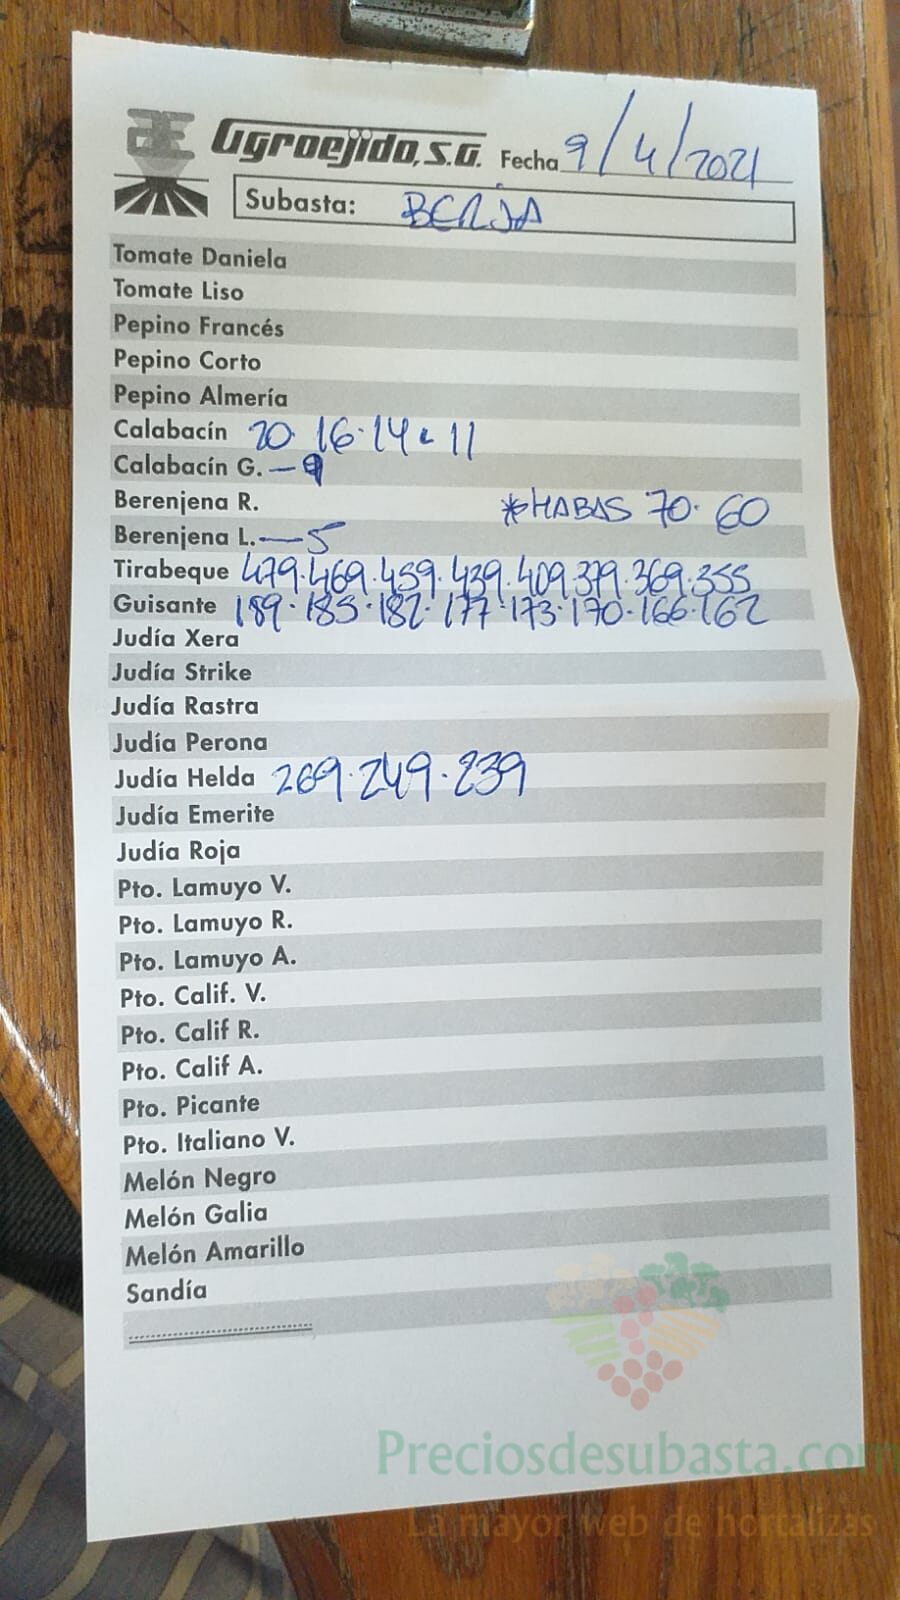 AE Agroejido, S.A. Fecha 9/4/2021
Subasta: BERJA
Tomate Daniela
Tomate Liso
Pepino Francés
Pepino Corto
Pepino Almería
Calabacín 20. 16.14.11
Calabacín G. - 9
Berenjena R. *HABAS 70. 60
Berenjena L. - 5
Tirabeque 479.469.459.439.409.379.369.355
Guisante 189.185.182.177.173.170.166.162
Judía Xera
Judía Strike
Judía Rastra
Judía Perona
Judía Helda 269.249.239
Judía Emerite
Judía Roja
Pto. Lamuyo V.
Pto. Lamuyo R.
Pto. Lamuyo A.
Pto. Calif. V.
Pto. Calif R.
Pto. Calif A.
Pto. Picante
Pto. Italiano V.
Melón Negro
Melón Galia
Melón Amarillo
Sandía
Preciosdesubasta.com
La mayor web de hortalizas